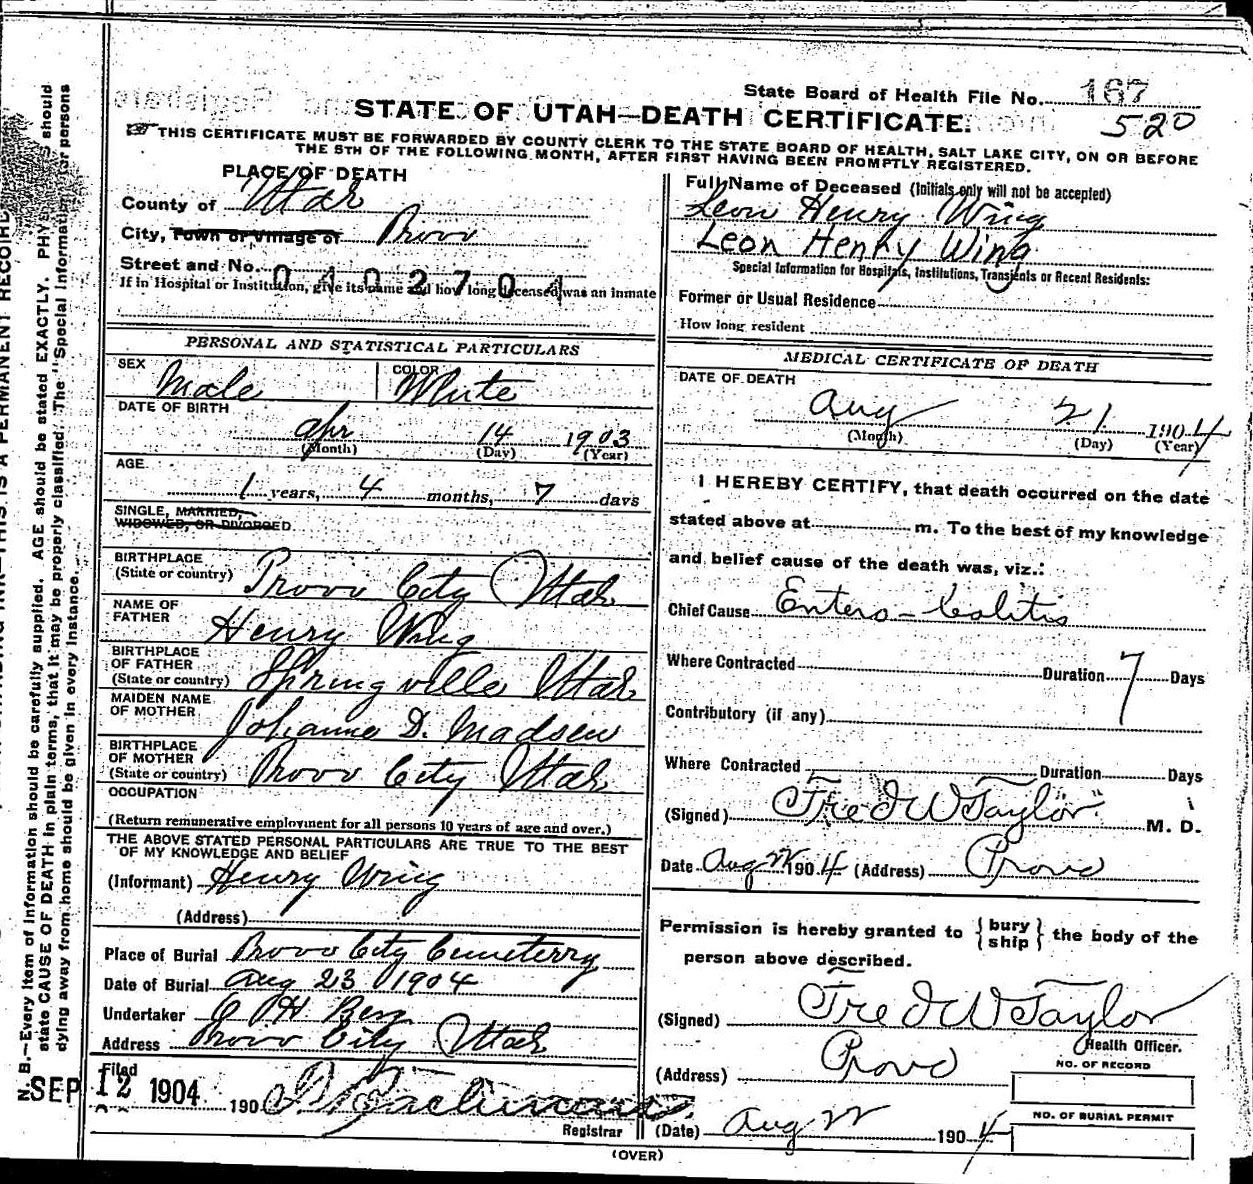 State Board of Health File No. 167
520
STATE OF UTAH—DEATH CERTIFICATE.
THIS CERTIFICATE MUST BE FORWARDED BY COUNTY CLERK TO THE STATE BOARD OF HEALTH, SALT LAKE CITY, ON OR BEFORE
THE 5TH OF THE FOLLOWING MONTH, AFTER FIRST HAVING BEEN PROMPTLY REGISTERED.
PLACE OF DEATH
County of Utah
City, Town or Village of Provo
Street and No.
0402704
If in Hospital or Institution, give its name and how long deceased was an inmate
Full Name of Deceased (Initials only will not be accepted)
Leon Henry Wing
Leon Henry Wing
Special Information for Hospitals, Institutions, Transients or Recent Residents:
Former or Usual Residence
How long resident
PERSONAL AND STATISTICAL PARTICULARS
SEX Male
COLOR White
DATE OF BIRTH
Apr 14 1903
(Month) (Day) (Year)
AGE
1 years, 4 months, 7 days
SINGLE, MARRIED,
WIDOWED, OR DIVORCED.
BIRTHPLACE
(State or country) Provo City Utah
NAME OF
FATHER Henry Wing
BIRTHPLACE
OF FATHER
(State or country) Springville Utah
MAIDEN NAME
OF MOTHER Johanna D. Madsen
BIRTHPLACE
OF MOTHER
(State or country) Provo City Utah
OCCUPATION
(Return remunerative employment for all persons 10 years of age and over.)
THE ABOVE STATED PERSONAL PARTICULARS ARE TRUE TO THE BEST
OF MY KNOWLEDGE AND BELIEF
(Informant) Henry Wing
(Address)
Place of Burial Provo City Cemeterry
Date of Burial Aug 23 1904
Undertaker O H Berg
Address Provo City Utah
Filed
SEP 12 1904 190
Registrar
MEDICAL CERTIFICATE OF DEATH
DATE OF DEATH
Aug 21 1904
(Month) (Day) (Year)
I HEREBY CERTIFY, that death occurred on the date
stated above at m. To the best of my knowledge
and belief cause of the death was, viz.:
Chief Cause Entero-Colitis
Where Contracted Duration 7 Days
Contributory (if any)
Where Contracted Duration Days
(Signed) Fred W Taylor M. D.
Date Aug 22 1904 (Address) Provo
Permission is hereby granted to { bury
ship } the body of the
person above described.
(Signed) Fred W Taylor
Health Officer.
(Address) Provo
NO. OF RECORD
NO. OF BURIAL PERMIT
(Date) Aug 22 1904
(OVER)
N. B.—Every item of information should be carefully supplied. AGE should be stated EXACTLY. should
state CAUSE OF DEATH in plain terms, that it may be properly classified. The "Special Information" for persons
dying away from home should be given in every instance.
THIS IS A PERMANENT RECORD